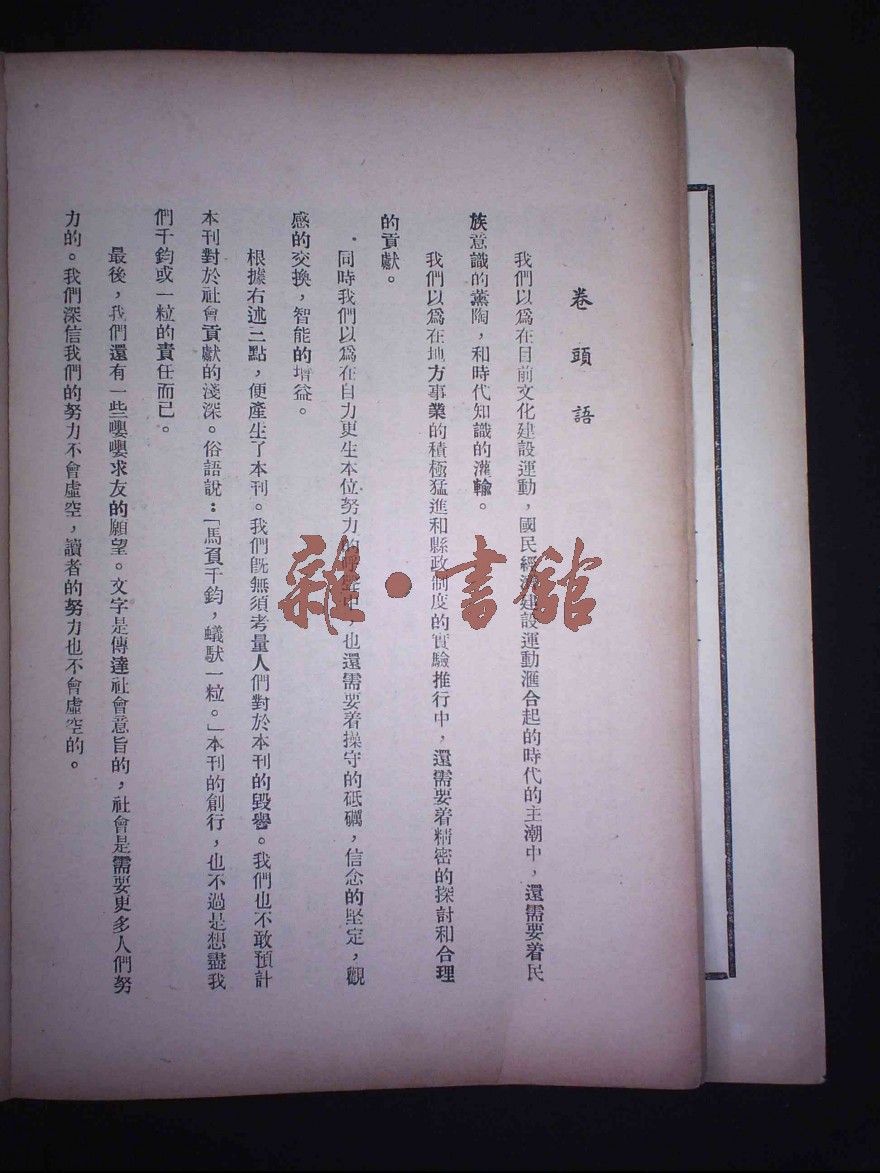 卷頭語
我們以爲在目前文化建設運動，國民經濟建設運動滙合起的時代的主潮中，還需要着民
族意識的薰陶，和時代知識的灌輸。
我們以爲在地方事業的積極猛進和縣政制度的實驗推行中，還需要着精密的探討和合理
的貢獻。
同時我們以爲在自力更生本位努力的呼聲中，也還需要着操守的砥礪，信念的堅定，觀
感的交換，智能的增益。
根據右述三點，便產生了本刊。我們旣無須考量人們對於本刊的毀譽。我們也不敢預計
本刊對於社會貢獻的淺深。俗語說：「馬負千鈞，蟻馱一粒。」本刊的創行，也不過是想盡我
們千鈞或一粒的責任而已。
最後，我們還有一些嚶嚶求友的願望。文字是傳達社會意旨的，社會是需要更多人們努
力的。我們深信我們的努力不會虛空，讀者的努力也不會虛空的。
雜·書館